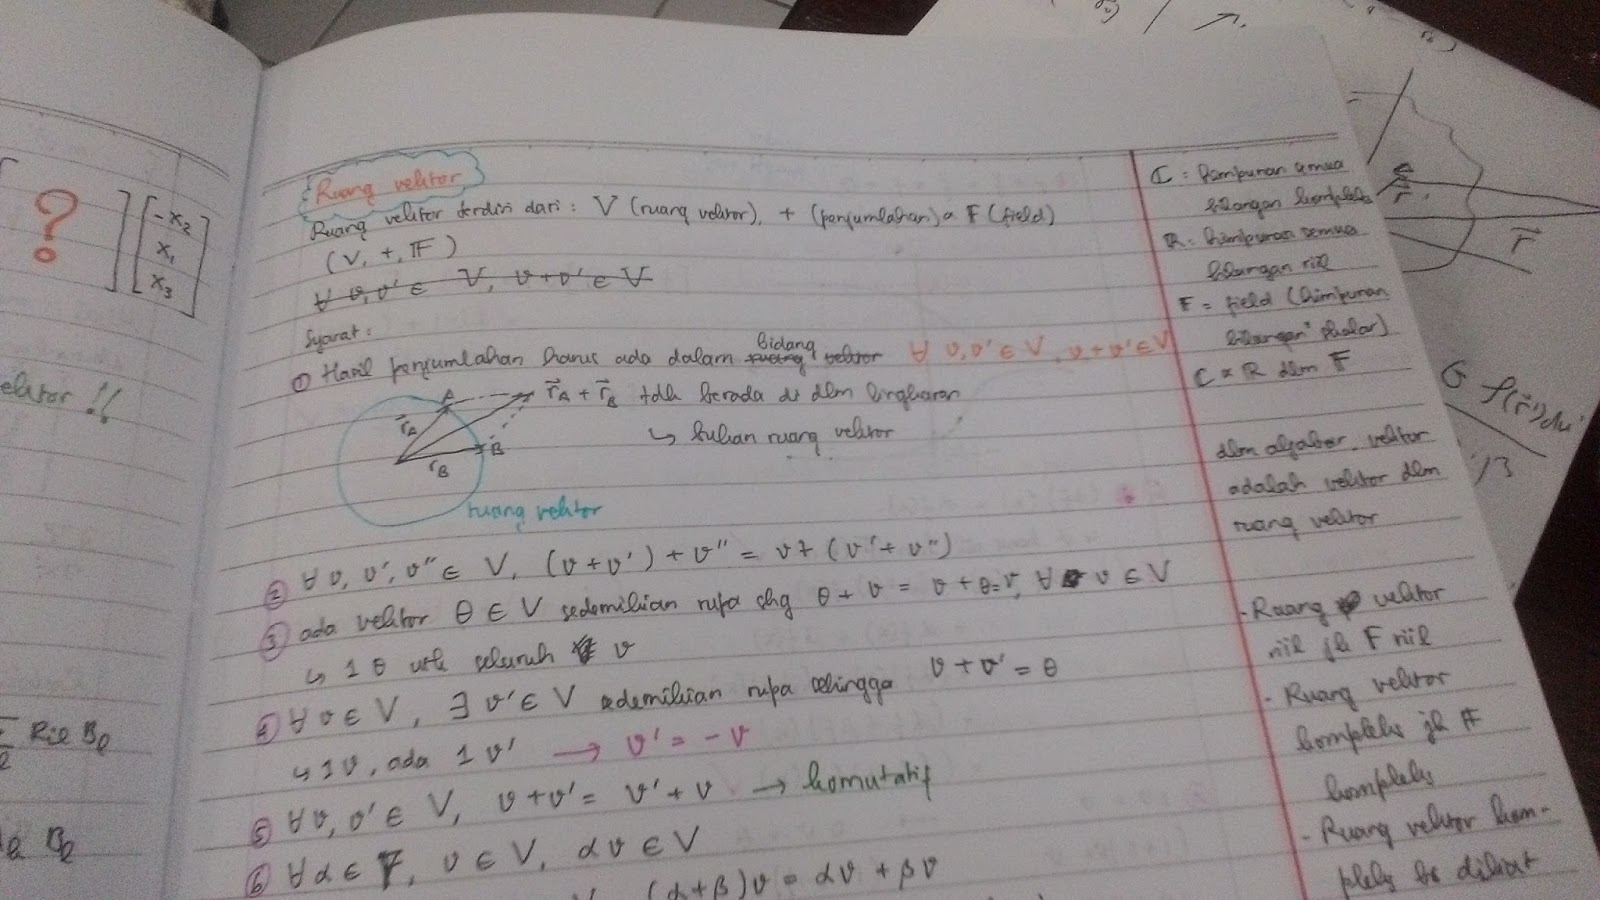 ?
-x₂
x₁
x₃
!!
Rie Bₑ
Bₑ
Ruang vektor
Ruang vektor terdiri dari : V (ruang vektor), + (penjumlahan) & F (field)
(V, +, F)
∀ v, v' ∈ V, v + v' ∈ V
Syarat :
① Hasil penjumlahan harus ada dalam bidang ruang vektor ∀ v, v' ∈ V, v + v' ∈ V
A
r⃗A + r⃗B tdk berada di dlm lingkaran
r⃗A
B
↳ bukan ruang vektor
rB
ruang vektor
② ∀ v, v', v'' ∈ V, (v + v') + v'' = v + (v' + v'')
③ ada vektor θ ∈ V sedemikian rupa shg θ + v = v + θ = v, ∀ v ∈ V
↳ 1 θ utk seluruh v
④ ∀ v ∈ V, ∃ v' ∈ V sedemikian rupa sehingga v + v' = θ
↳ 1 v, ada 1 v' → v' = -v
⑤ ∀ v, v' ∈ V, v + v' = v' + v → komutatif
⑥ ∀ α ∈ F, v ∈ V, αv ∈ V
(α + β)v = αv + βv
C : himpunan semua
bilangan kompleks
R = himpunan semua
bilangan riil
F = field (himpunan
bilangan² skalar)
C & R dlm F
dlm aljabar, vektor
adalah vektor dlm
ruang vektor
- Ruang vektor
riil jk F riil
- Ruang vektor
kompleks jk F
kompleks
- Ruang vektor kom-
pleks bs dilihat
r⃗